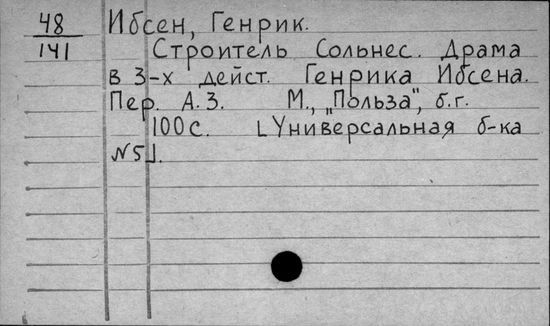 48 Ибсен, Генрик.
141 Строитель Сольнес. Драма
в 3-х дейст. Генрика Ибсена.
Пер. А.З. М., „Польза", б.г.
100с. [Универсальная б-ка
№5].